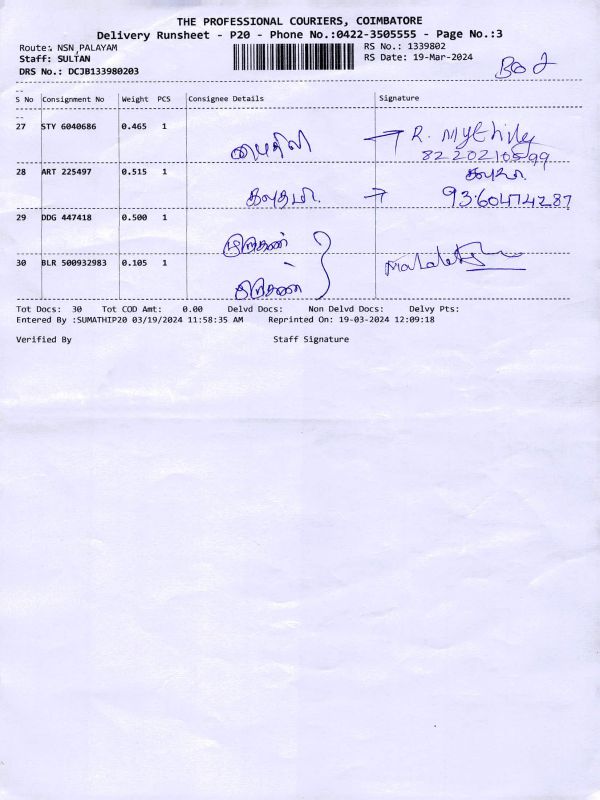 THE PROFESSIONAL COURIERS, COIMBATORE
Delivery Runsheet - P20 - Phone No.:0422-3505555 - Page No.:3
Route: NSN PALAYAM
RS No.: 1339802
Staff: SULTAN
RS Date: 19-Mar-2024
DRS No.: DCJB133980203
S No Consignment No Weight PCS Consignee Details Signature
27 STY 6040686 0.465 1
மைதிலி → R. Mythily
8220210599
28 ART 225497 0.515 1
கவுதம். → 9360474287
29 DDG 447418 0.500 1
முருகன்
30 BLR 500932983 0.105 1
முருகன்
Tot Docs: 30 Tot COD Amt: 0.00 Delvd Docs: Non Delvd Docs: Delvy Pts:
Entered By :SUMATHIP20 03/19/2024 11:58:35 AM Reprinted On: 19-03-2024 12:09:18
Verified By Staff Signature